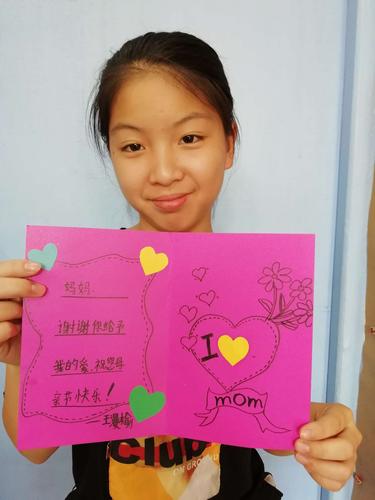 妈妈.
谢谢你给予
我的爱,祝您母
亲节快乐!
—王漫榆
I
mom
Club